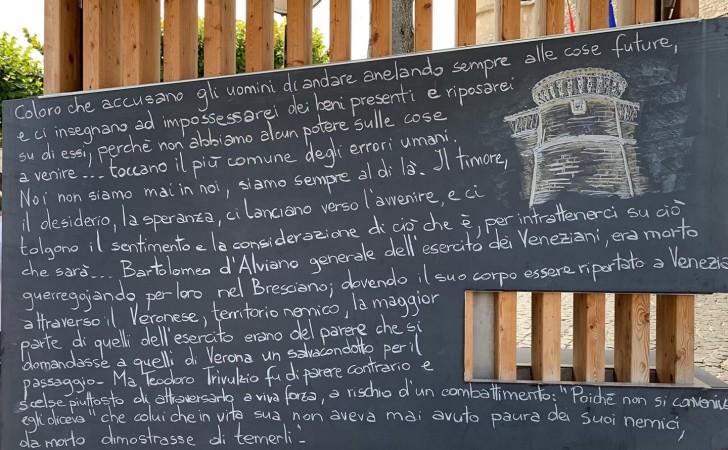 Coloro che accusano gli uomini di andare anelando sempre alle cose future,
e ci insegnano ad impossessarei dei beni presenti e riposarei
su di essi, perchè non abbiamo alcun potere sulle cose
a venire .... toccano il più comune degli errori umani.
Noi non siamo mai in noi, siamo sempre al di là. Il timore,
il desiderio, la speranza, ci lanciano verso l'avvenire, e ci
tolgono il sentimento e la considerazione di ciò che è, per intrattenerci su ciò
che sarà.... Bartolomeo d'Alviano generale dell'esercito dei Veneziani, era morto
guerreggiando per loro nel Bresciano; dovendo il suo corpo essere riportato a Venezia
attraverso il Veronese, territorio nemico, la maggior
parte di quelli dell'esercito erano del parere che si
domandasse a quelli di Verona un salvacondotto per il
passaggio- Ma Teodoro Trivulzio fu di parere contrario e
scelse piuttosto di attraversarlo a viva forza, a rischio d'un combattimento: "Poichè non si conveniv
egli diceva" che colui che in vita sua non aveva mai avuto paura dei suoi nemici,
da morto dimostrasse di temerli-